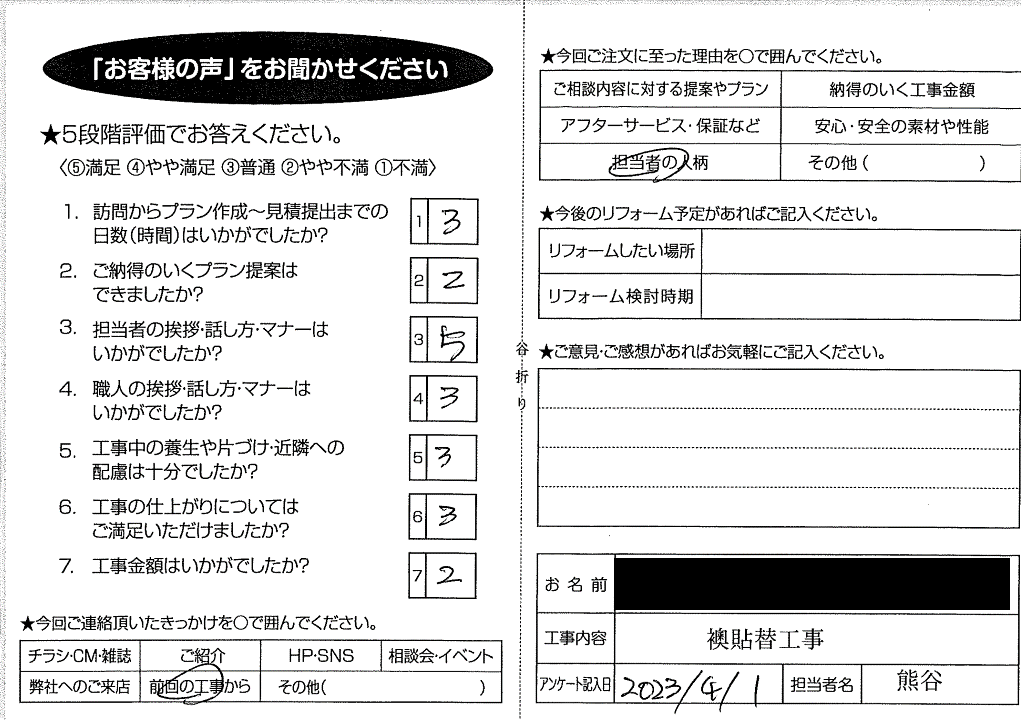 「お客様の声」をお聞かせください
★5段階評価でお答えください。
〈⑤満足 ④やや満足 ③普通 ②やや不満 ①不満〉
1. 訪問からプラン作成～見積提出までの
日数(時間)はいかがでしたか?
1 3
2. ご納得のいくプラン提案は
できましたか?
2 2
3. 担当者の挨拶・話し方・マナーは
いかがでしたか?
3 5
4. 職人の挨拶・話し方・マナーは
いかがでしたか?
4 3
5. 工事中の養生や片づけ・近隣への
配慮は十分でしたか?
5 3
6. 工事の仕上がりについては
ご満足いただけましたか?
6 3
7. 工事金額はいかがでしたか?
7 2
★今回ご連絡頂いたきっかけを〇で囲んでください。
チラシ・CM・雑誌 ご紹介 HP・SNS 相談会・イベント
弊社へのご来店 前回の工事から その他( )
谷折り
★今回ご注文に至った理由を〇で囲んでください。
ご相談内容に対する提案やプラン 納得のいく工事金額
アフターサービス・保証など 安心・安全の素材や性能
担当者の人柄 その他( )
★今後のリフォーム予定があればご記入ください。
リフォームしたい場所
リフォーム検討時期
★ご意見・ご感想があればお気軽にご記入ください。
お名前
工事内容 襖貼替工事
アンケート記入日 2023/4/1 担当者名 熊谷